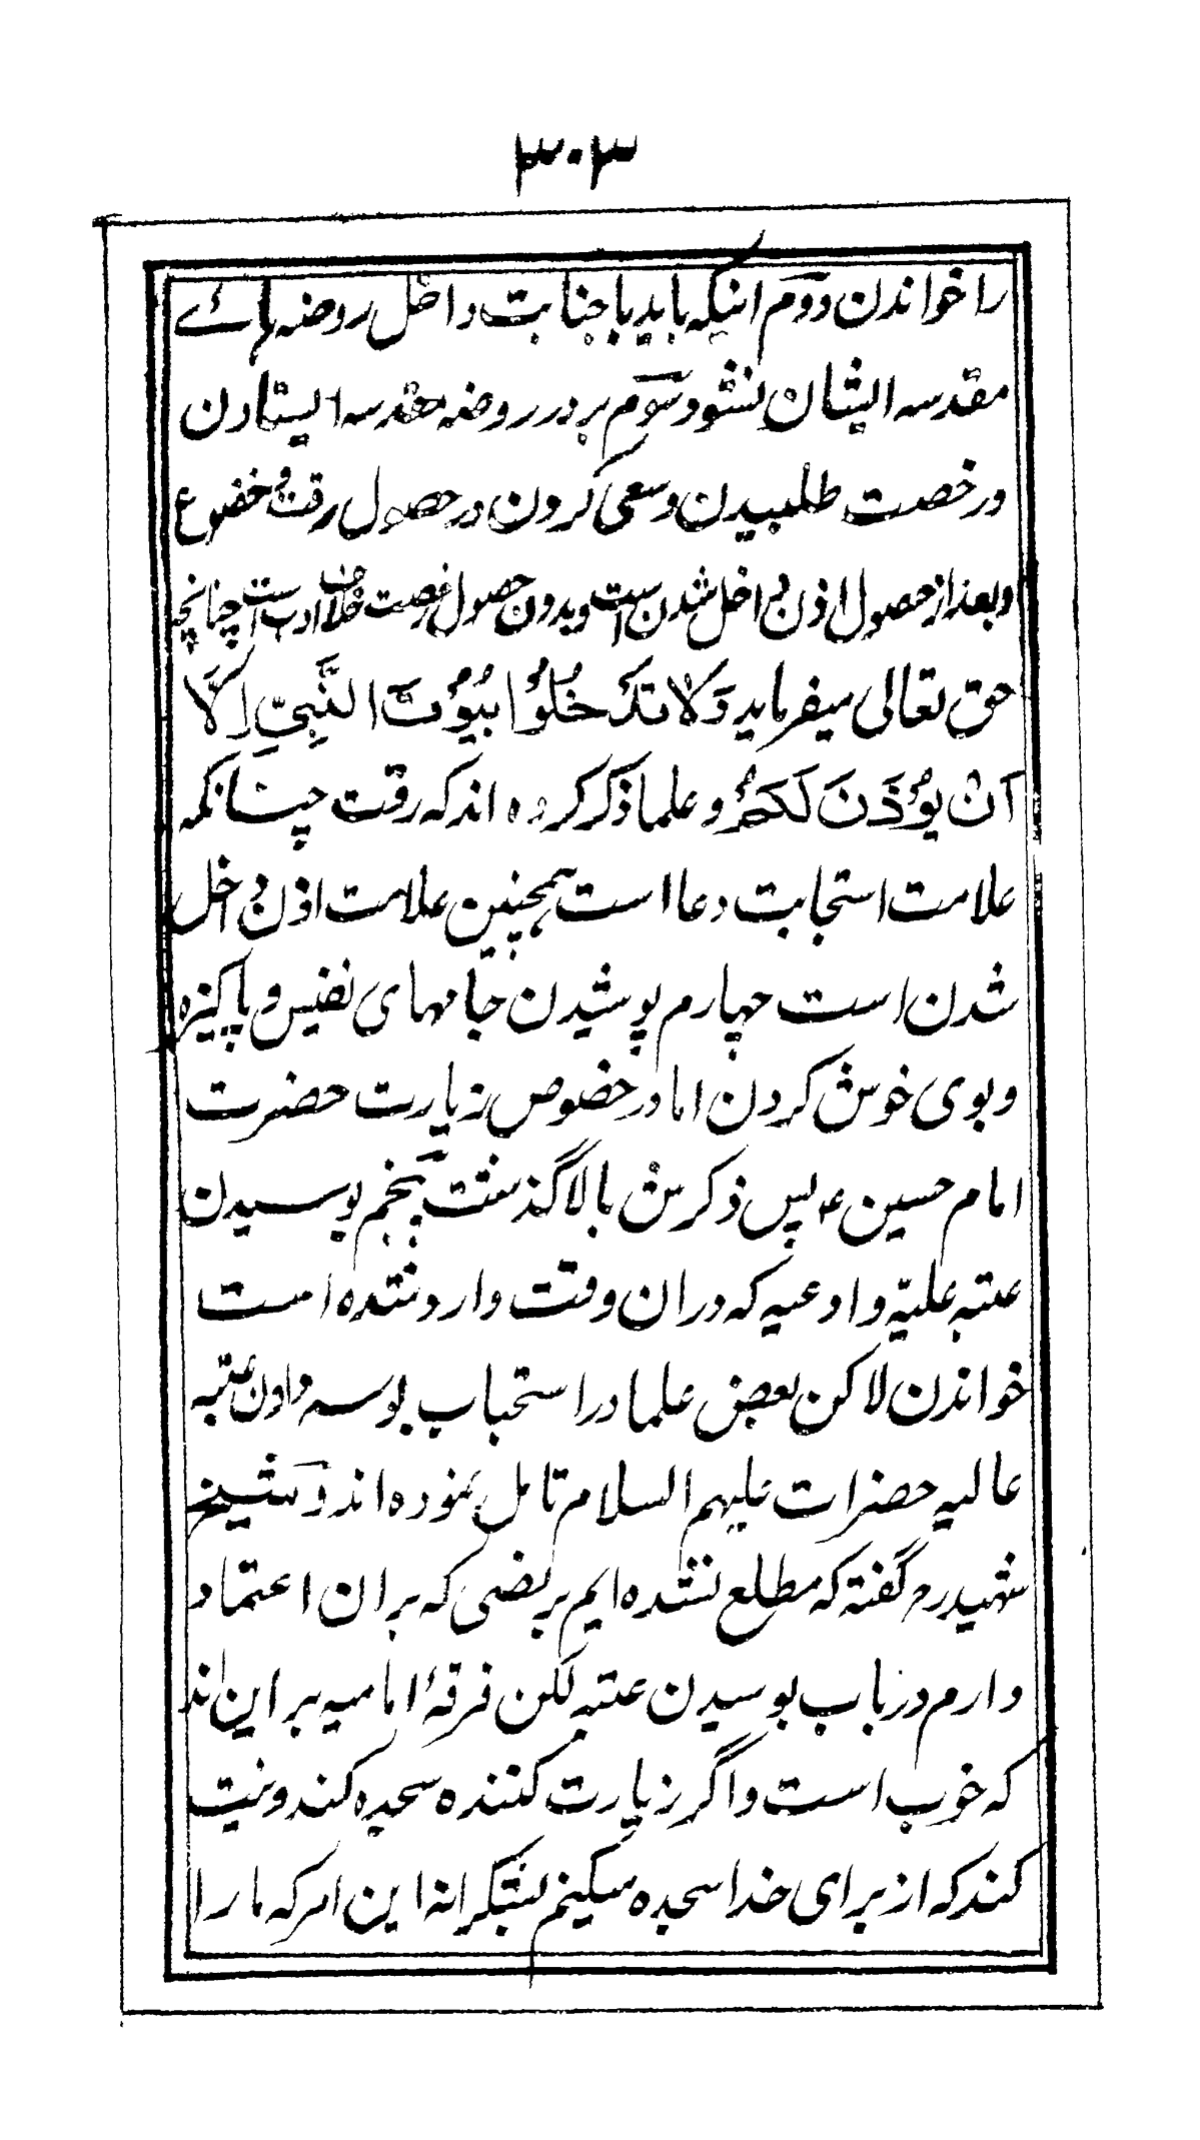 ۳۰۳
را خواندن دوّم اینکه باید با جنابت داخل روضہ ہائے
مقدسہ ایشان نشود سوّم بر در روضہ مقدسہ ایستادن
و رخصت طلبیدن و سعی کردن در حصول رقت و خضوع
و بعد از حصول اذن داخل شدن است و بدون حصول رخصت خلاف ادب است چنانچہ
حق تعالی میفرماید وَلَا تَدْخُلُوْا بُيُوْتَ النَّبِيِّ اِلَّا
اَنْ يُؤْذَنَ لَكُمْ و علما ذکر کردہ اند کہ رقت چنانکہ
علامت استجابت دعا است ہمچنین علامت اذن داخل
شدن است چہارم پوشیدن جامہای نفیس و پاکیزہ
و بوی خوش کردن اما در خصوص زیارت حضرت
امام حسین ع پس ذکرش بالا گذشت پنجم بوسیدن
عتبہ علیّہ و ادعیہ کہ دران وقت وارد شدہ است
خواندن لاکن بعض علما در استحباب بوسہ دادن عتبہ
عالیہ حضرات علیہم السلام تامل نمودہ اند و شیخ
شہید رہ گفتہ کہ مطلع نشدہ ایم بر نصی کہ بران اعتماد
دارم در باب بوسیدن عتبہ لکن فرقۂ امامیہ بر این اند
کہ خوب است و اگر زیارت کنندہ سجدہ کند و نیت
کند کہ از برای خدا سجدہ میکنم بشکرانہ این امر کہ ما را